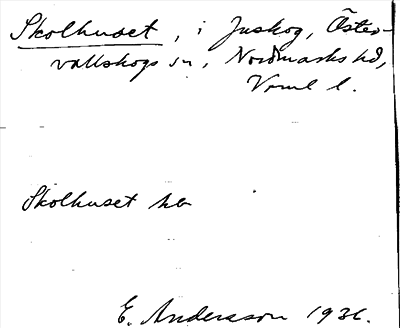 Skolhuset, i Juskog, Öster-
vallskogs sn, Nordmarks hd,
Vrml l.
Skolhuset
E. Andersson 1936.